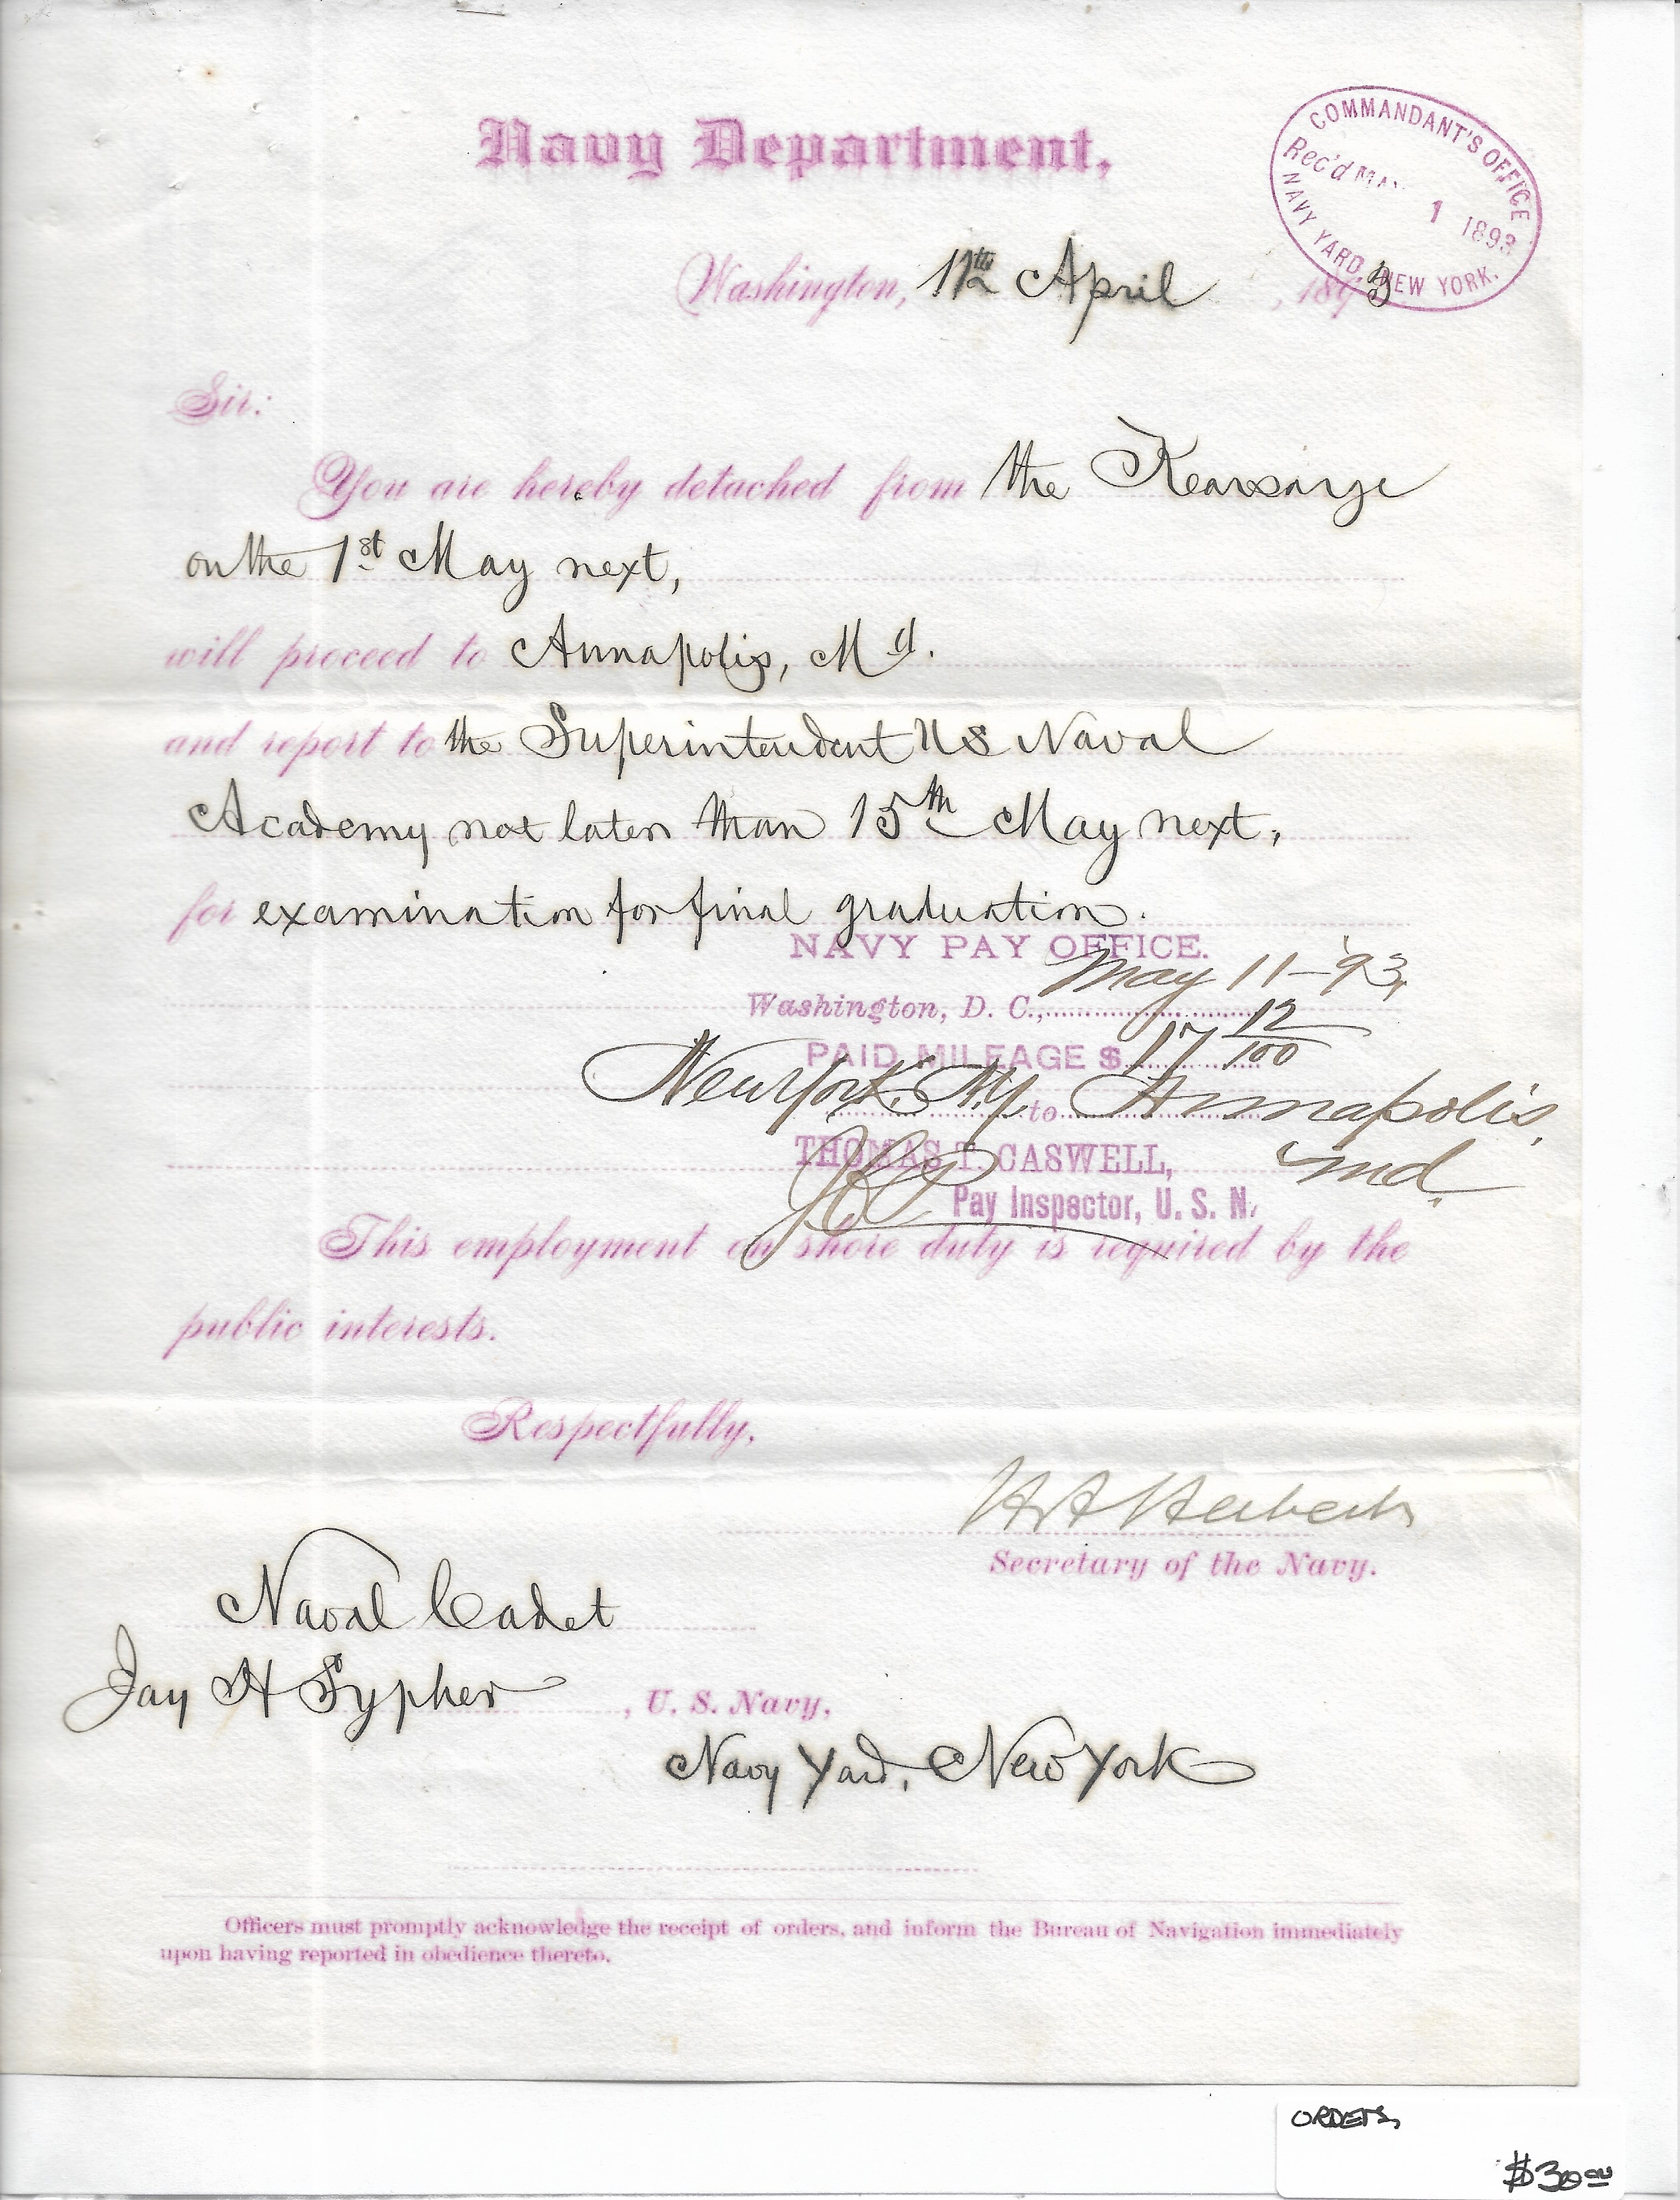 Navy Department,
COMMANDANT'S OFFICE
Rec'd MAY 1 1893
NAVY YARD, NEW YORK.
Washington, April, 1893
Sir:
You are hereby detached from the Kearsarge
on the 1st May next,
will proceed to Annapolis, Md.
and report to the Superintendent US Naval
Academy not later than 15th May next,
for examination for final graduation.
NAVY PAY OFFICE.
Washington, D. C., May 11-93,
PAID MILEAGE $ 17 12/100
New York, N.Y. to Annapolis,
Md.
THOMAS T. CASWELL,
Pay Inspector, U. S. N.
This employment on shore duty is required by the
public interests.
Respectfully,
H A Herbert
Secretary of the Navy.
Naval Cadet
Jay H Sypher, U. S. Navy,
Navy Yard, New York
Officers must promptly acknowledge the receipt of orders, and inform the Bureau of Navigation immediately
upon having reported in obedience thereto.
ORDERS,
$30.00